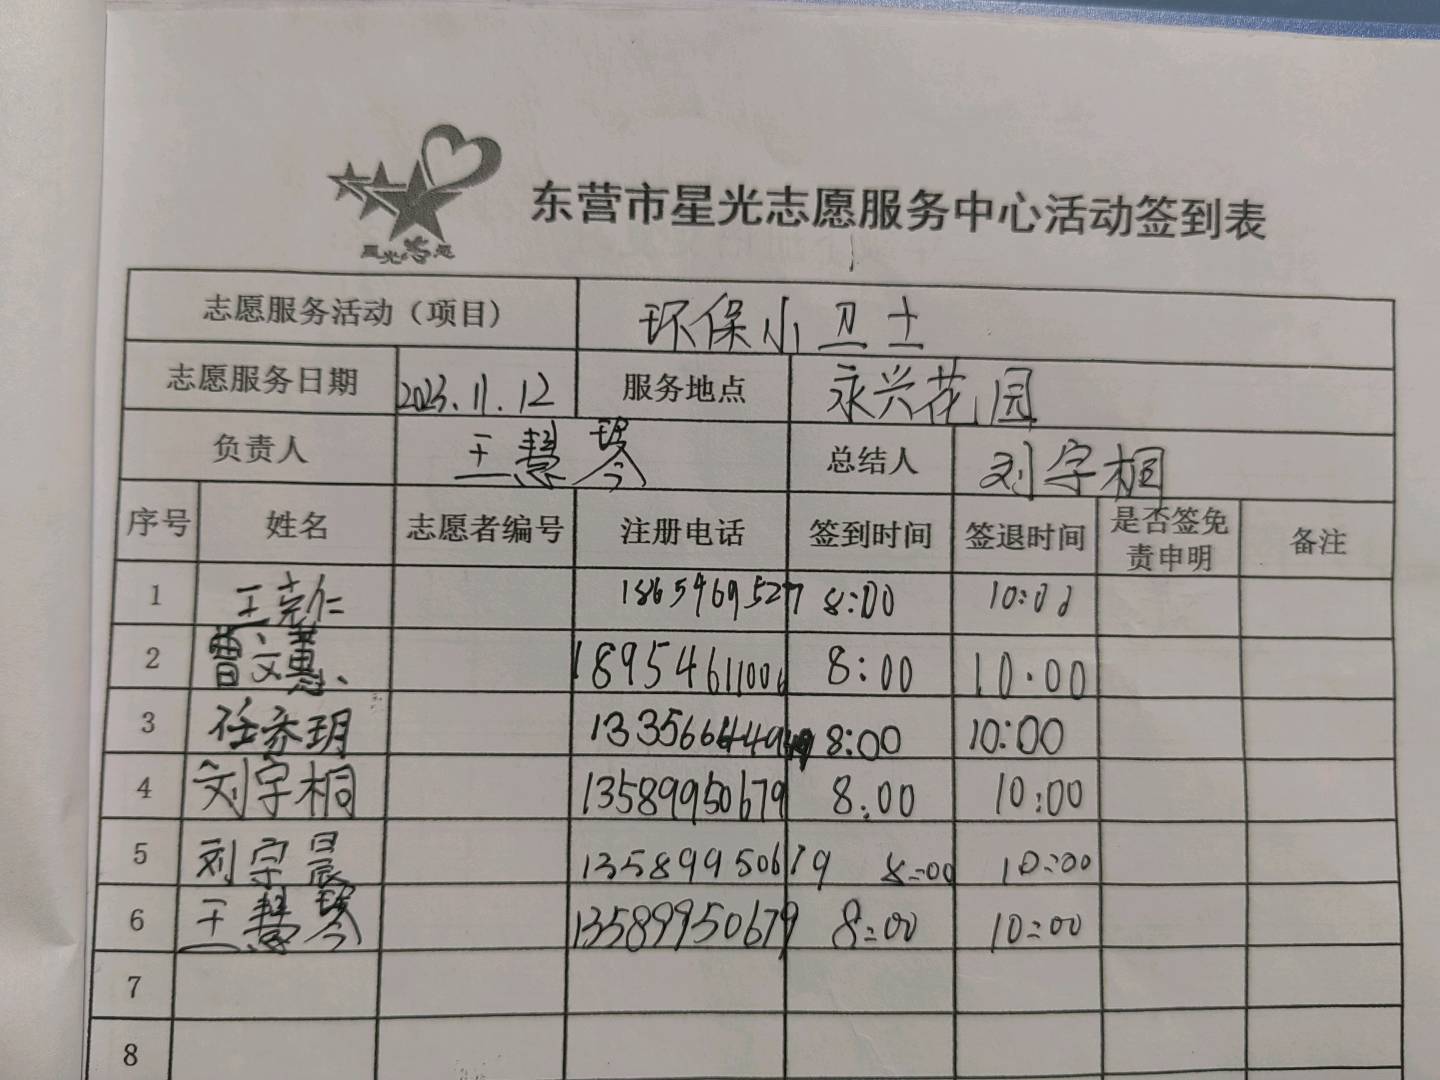 星光志愿
东营市星光志愿服务中心活动签到表
志愿服务活动（项目） 环保小卫士
志愿服务日期 2023.11.12 服务地点 永兴花园
负责人 王慧琴 总结人 刘宇桐
序号 姓名 志愿者编号 注册电话 签到时间 签退时间 是否签免责申明 备注
1 王尧仁 18654695277 8:00 10:00
2 曹文惠 18954611006 8:00 10.00
3 任乔玥 8:00 10:00
4 刘宇桐 13589950679 8.00 10:00
5 刘宇晨 13589950679 8:00 10:00
6 王慧琴 13589950679 8:00 10:00
7
8